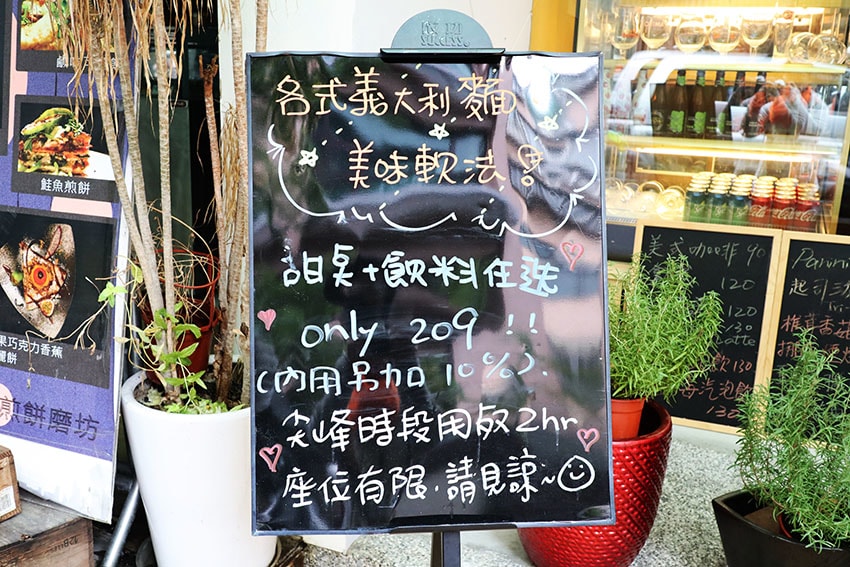 各式義大利麵
美味軟法
甜桌+飲料任選
only 209 !!
(內用另加 10%).
尖峰時段用餐2hr
座位有限.請見諒~
鮭魚煎餅
果巧克力香蕉
煎餅磨坊
美式咖啡 90
120
120
130
飲130
每汽泡飲
132
Panini